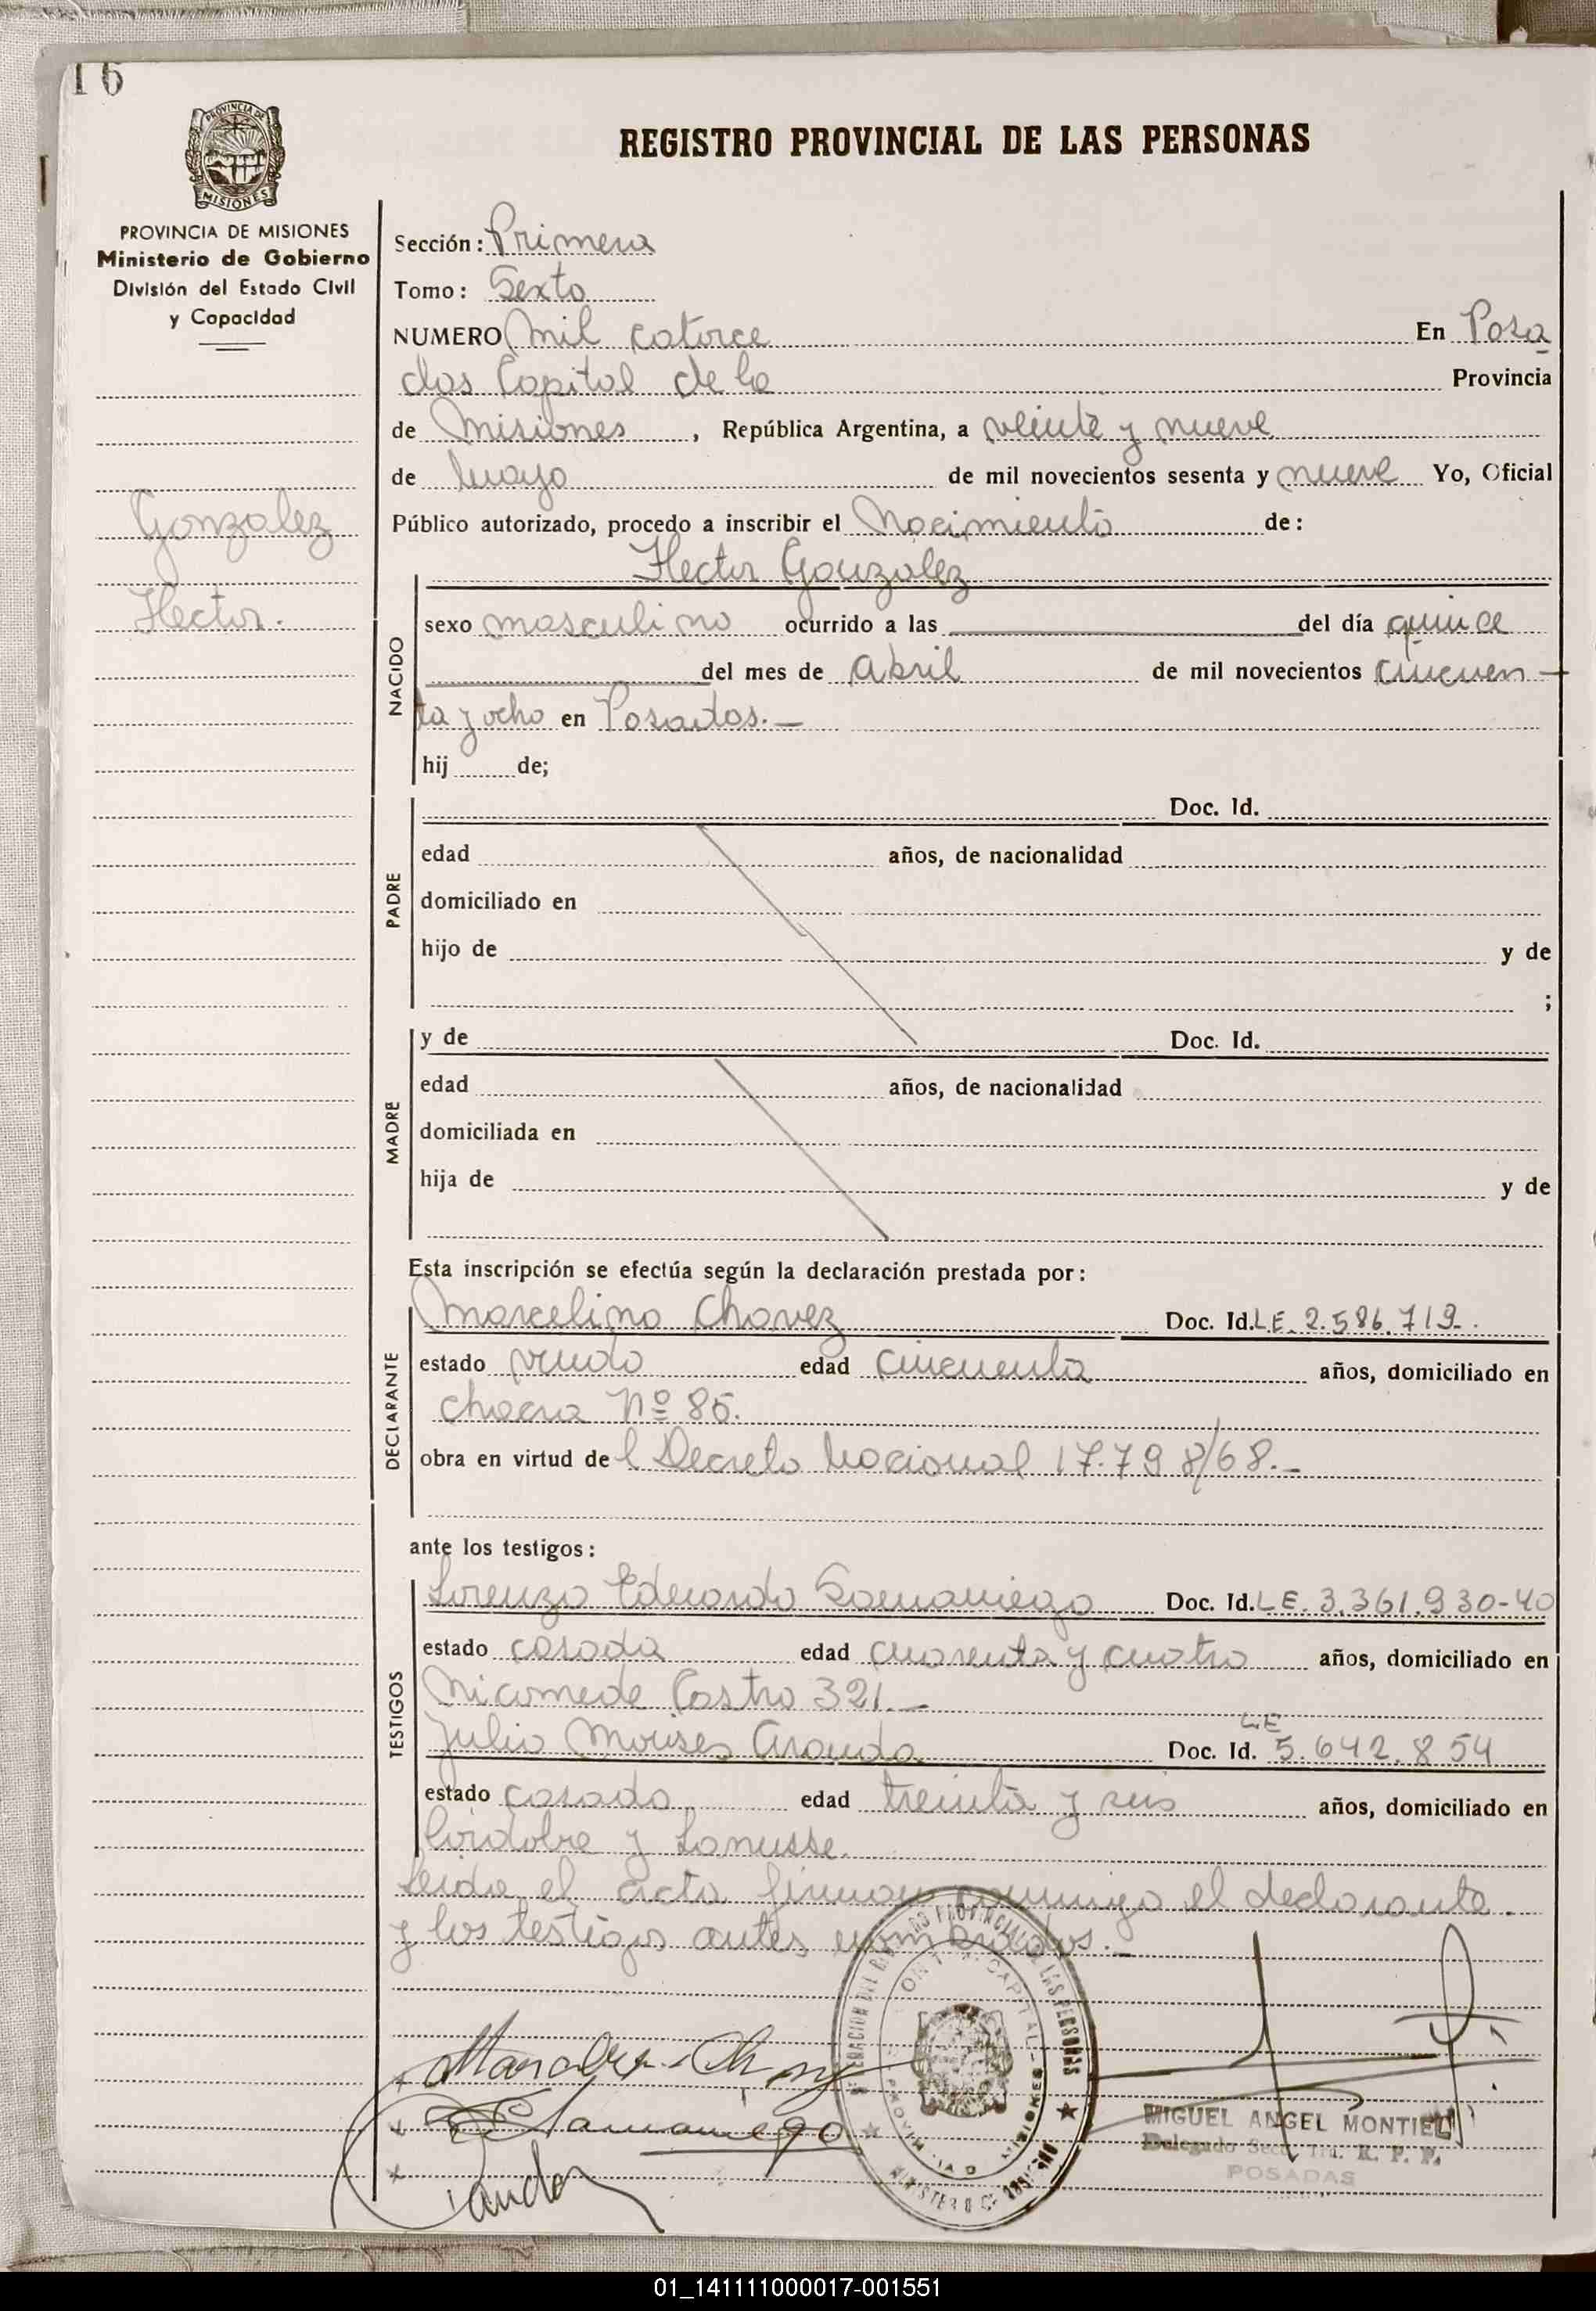 16
PROVINCIA DE
MISIONES
REGISTRO PROVINCIAL DE LAS PERSONAS
PROVINCIA DE MISIONES
Ministerio de Gobierno
División del Estado Civil
y Capacidad
Gonzalez
Hector.
Sección: Primera
Tomo: Sexto
NUMERO Mil catorce En Posa
das Capital de la Provincia
de Misiones, República Argentina, a veinte y nueve
de Mayo de mil novecientos sesenta y nueve Yo, Oficial
Público autorizado, procedo a inscribir el Nacimiento de:
Hector Gonzalez
NACIDO
sexo masculino ocurrido a las del día quince
del mes de Abril de mil novecientos cincuen
ta y ocho en Posadas.-
hij de;
PADRE
Doc. Id.
edad años, de nacionalidad
domiciliado en
hijo de y de
;
MADRE
y de Doc. Id.
edad años, de nacionalidad
domiciliada en
hija de y de
Esta inscripción se efectúa según la declaración prestada por:
DECLARANTE
Marcelino Chavez Doc. Id. L.E. 2.586.719.
estado viudo edad cincuenta años, domiciliado en
chacra Nº 85.
obra en virtud del Decreto Nacional 17.798/68.-
ante los testigos:
TESTIGOS
Lorenzo Eduardo Samaniego Doc. Id. L.E. 3.361.930-40
estado casado edad cuarenta y cuatro años, domiciliado en
Nicomede Castro 321.-
Julio Moises Aranda Doc. Id. L.E 5.642.854
estado casado edad treinta y seis años, domiciliado en
Córdoba y Lanusse.
Leida el acta firman conmigo el declarante
y los testigos antes nombrados.-
Samaniego
MIGUEL ANGEL MONTIEL
Delegado Secc. 1ra. R. P. P.
POSADAS
01_141111000017-001551